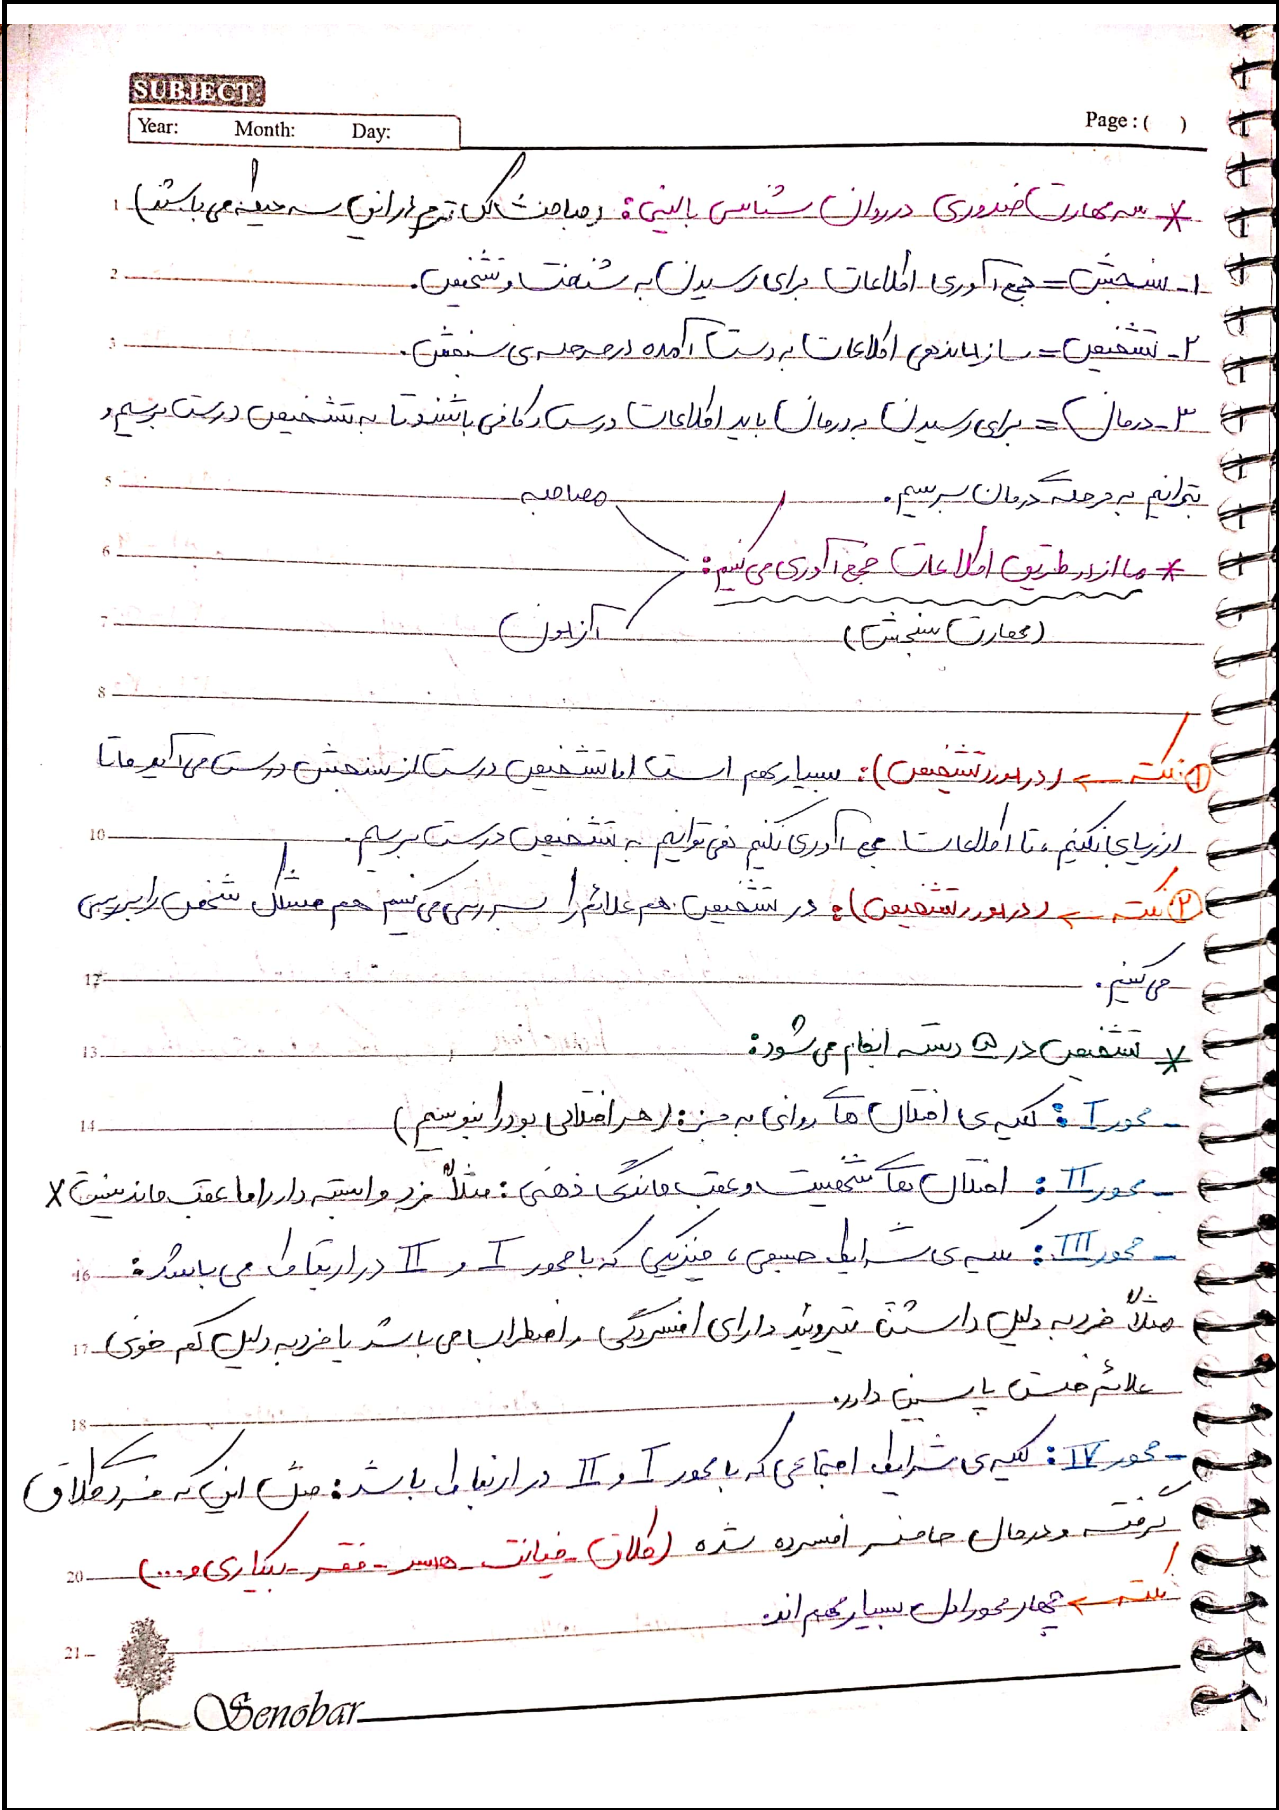 SUBJECT:
Year: Month: Day:
Page : ( )
* سه مهارت ضروری در روان شناسی بالینی: (مباحث کل ترم از این سه حیطه می باشند)
۱- سنجش = جمع آوری اطلاعات برای رسیدن به شناخت و تشخیص.
۲- تشخیص = سازماندهی اطلاعات به دست آمده در مرحله ی سنجش.
۳- درمان = برای رسیدن به درمان باید اطلاعات درست و کافی باشند تا به تشخیص درست برسیم و
بتوانیم به مرحله درمان برسیم.
مصاحبه
* ما از دو طریق اطلاعات جمع آوری می کنیم:
(مهارت سنجش)
آزمون
① نکته ← (در مورد تشخیص): بسیار مهم است اما تشخیص درست از سنجش درست می آید ما تا
ارزیابی نکنیم، تا اطلاعات جمع آوری نکنیم نمی توانیم به تشخیص درست برسیم.
② نکته ← (در مورد تشخیص): در تشخیص هم علائم را بررسی می کنیم هم مشکل شخص را بررسی
می کنیم.
* تشخیص در ۵ دسته انجام می شود:
- محور I : کلیه ی اختلال های روانی به جز: (هر اختلالی بود را بنویسیم)
- محور II : اختلال های شخصیت و عقب ماندگی ذهنی: مثلاً فرد وابسته دارد اما عقب مانده نیست X
- محور III : کلیه ی شرایط جسمی، فیزیکی که با محور I و II در ارتباط می باشد:
مثلاً فرد به دلیل داشتن تیروئید دارای افسردگی و اضطراب می باشد یا فرد به دلیل کم خونی
علائم خلق پایین دارد.
- محور IV : کلیه ی شرایط اجتماعی که با محور I و II در ارتباط باشد: مثل این که فرد طلاق
گرفته و در حال حاضر افسرده شده (طلاق - خیانت همسر - فقر - بیکاری و...)
نکته ← چهار محور اول بسیار مهم اند.
Senobar